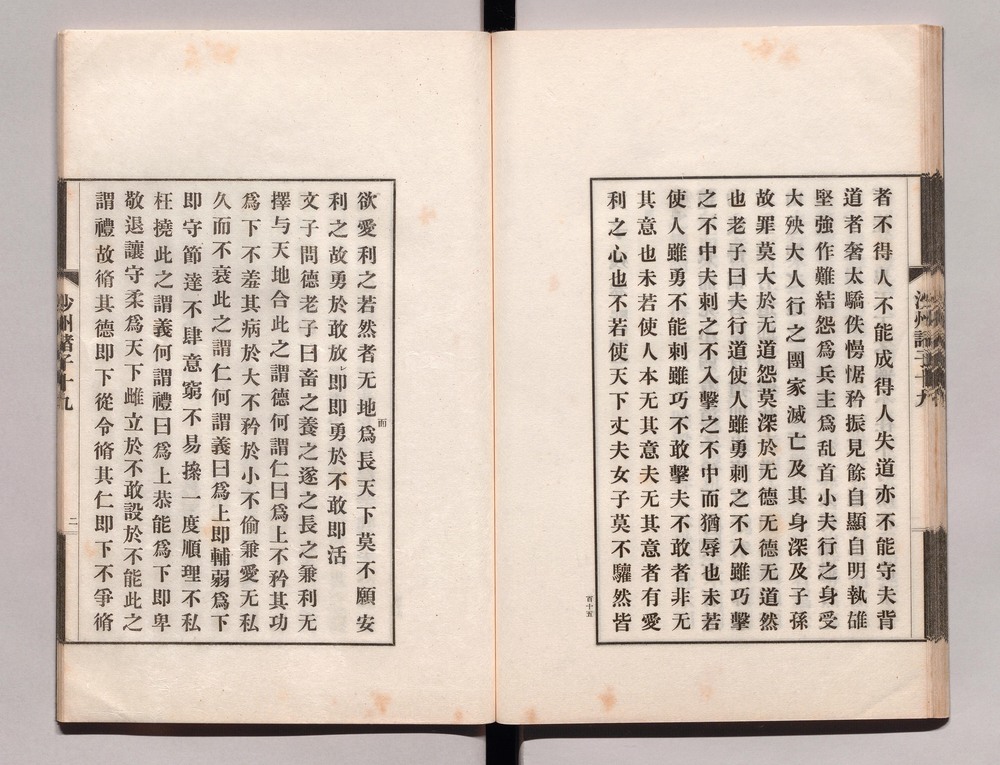 者不得人不能成得人失道亦不能守夫背
道者奢太驕佚慢倨矜振見餘自顯自明執雄
堅強作難結怨為兵主為乱首小夫行之身受
大殃大人行之國家滅亡及其身深及子孫
故罪莫大於无道怨莫深於无德无德无道然
也老子曰夫行道使人雖勇刺之不入雖巧擊
之不中夫刺之不入擊之不中而猶辱也未若
使人雖勇不能刺雖巧不敢擊夫不敢者非无
其意也未若使人本无其意夫无其意者有愛
利之心也不若使天下丈夫女子莫不驩然皆
百十五
欲愛利之若然者无地為長天下莫不願安
而
利之故勇於敢放レ即即勇於不敢即活
文子問德老子曰畜之養之遂之長之兼利无
擇与天地合此之謂德何謂仁曰為上不矜其功
為下不羞其病於大不矜於小不偷兼愛无私
久而不衰此之謂仁何謂義曰為上即輔弱為下
即守節達不肆意窮不易操一度順理不私
枉撓此之謂義何謂禮曰為上恭能為下即卑
敬退讓守柔為天下雌立於不敢設於不能此之
謂禮故脩其德即下從令脩其仁即下不爭脩
沙州諸子十九
二
沙州諸子十九